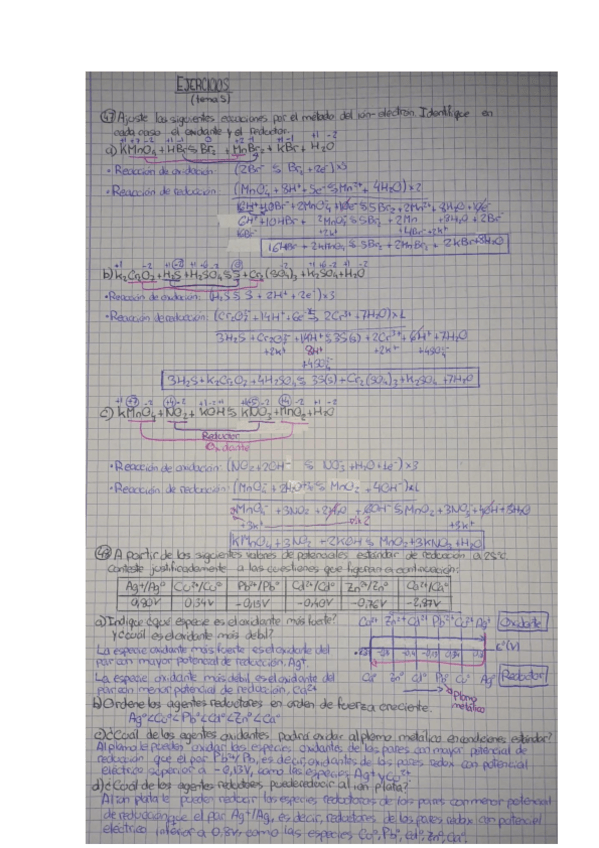 EJERCICIOS
(tema 5)
47 Ajuste las siguientes ecuaciones por el método del ion-electrón. Identifique en
cada caso el oxidante y el reductor.
a) KMnO4 + HBr ⇆ Br2 + MnBr2 + KBr + H2O
• Reacción de oxidación: (2Br- ⇆ Br2 + 2e-) x5
• Reacción de reducción: (MnO4- + 8H+ + 5e- ⇆ Mn2+ + 4H2O) x2
16HBr + 2KMnO4 ⇆ 5Br2 + 2MnBr2 + 2KBr + 8H2O
b) K2Cr2O7 + H2S + H2SO4 ⇆ S + Cr2(SO4)3 + K2SO4 + H2O
• Reacción de oxidación: (H2S ⇆ S + 2H+ + 2e-) x3
• Reacción de reducción: (Cr2O7 + 14H+ + 6e- ⇆ 2Cr3+ + 7H2O) x1
3H2S + Cr2O7 + 14H+ ⇆ 3S(s) + 2Cr3+ + 6H+ + 7H2O
+2K+ 8H+ +2K+ +4SO4
+4SO4
3H2S + K2Cr2O7 + 4H2SO4 ⇆ 3S(s) + Cr2(SO4)3 + K2SO4 + 7H2O
c) KMnO4 + NO2 + KOH ⇆ KNO3 + MnO2 + H2O
Reductor
Oxidante
• Reacción de oxidación: (NO2 + 2OH- ⇆ NO3 + H2O + 1e-) x3
• Reacción de reducción: (MnO4 + 2H2O + 3e- ⇆ MnO2 + 4OH-) x1
+3K+ +3K+
KMnO4 + 3NO2 + 2KOH ⇆ MnO2 + 3KNO3 + H2O
48 A partir de los siguientes valores de potenciales estándar de reducción a 25ºC.
Conteste justificadamente a las cuestiones que figuran a continuación:
Ag+/Agº Cu2+/Cuº Pb2+/Pbº Cd2+/Cdº Zn2+/Znº Ca2+/Caº
0,80V 0,34V -0,13V -0,40V -0,76V -2,87V
a) Indique ¿qué especie es el oxidante más fuerte? Ca2+ Zn2+ Cd2+ Pb2+ Cu2+ Ag+ Oxidante
y ¿cuál es el oxidante más débil?
La especie oxidante más fuerte es el oxidante del εº(V)
par con mayor potencial de reducción, Ag+.
La especie oxidante más débil es el oxidante del Caº Znº Cdº Pbº Cuº Agº Reductor
par con menor potencial de reducción, Ca2+
plomo
metálico
b) Ordene los agentes reductores en orden de fuerza creciente.
Agº<Cuº<Pbº<Cdº<Znº<Caº
c) ¿Cuál de los agentes oxidantes podrá oxidar al plomo metálico en condiciones estándar?
Al plomo le pueden oxidar las especies oxidantes de los pares con mayor potencial de
reducción que el par Pb2+/Pb, es decir, oxidantes de los pares redox con potencial
eléctrico superior a -0,13V, como las especies Ag+ y Cu2+
d) ¿Cuál de los agentes reductores puede reducir al ion plata?
Al ion plata le pueden reducir las especies reductoras de los pares con menor potencial
de reducción que el par Ag+/Ag, es decir, reductores de los pares redox con potencial
eléctrico inferior a 0,8V, como las especies Cuº, Pbº, Cdº, Znº, Caº.